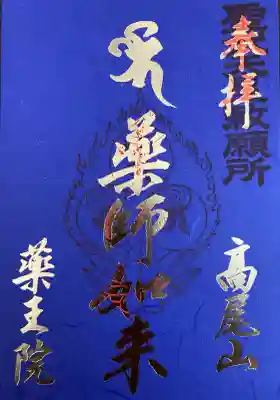 奉拝
願所
高尾山
藥師如来
藥王院